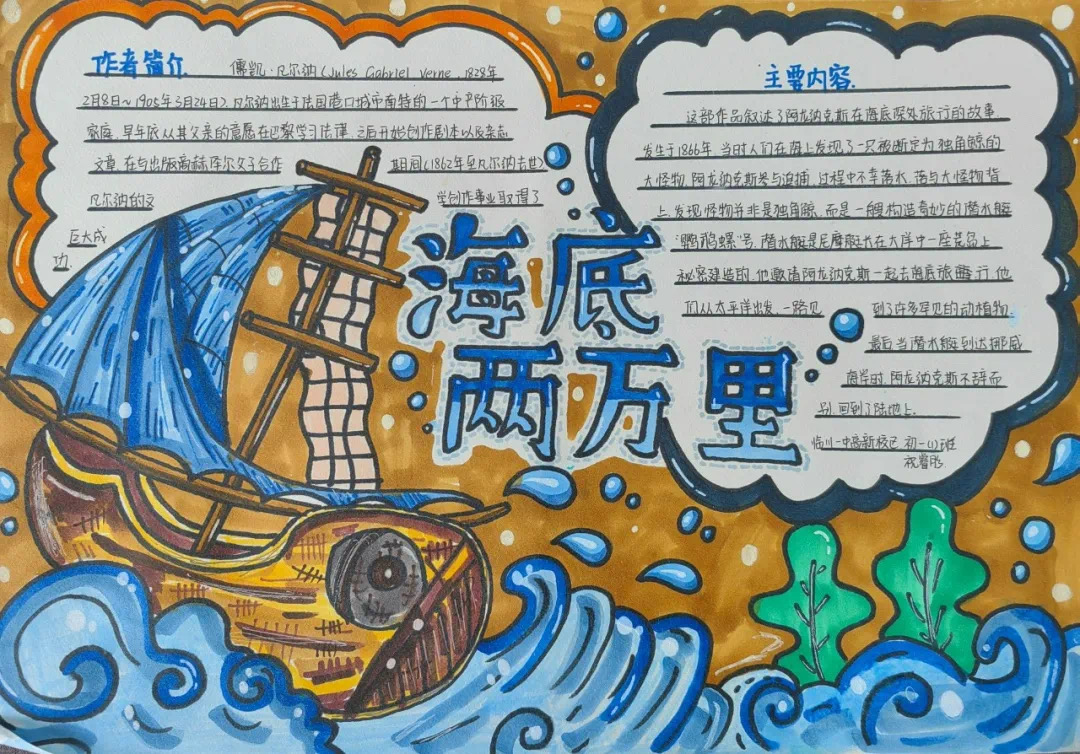 作者简介
儒凯·凡尔纳(Jules Gabriel Verne,1828年
2月8日~1905年3月24日),凡尔纳出生于法国港口城市南特的一个中产阶级
家庭,早年依从其父亲的意愿在巴黎学习法律,之后开始创作剧本以及杂志
文章,在与出版商赫泽尔父子合作 期间(1862年至凡尔纳去世)
凡尔纳的文 学创作事业取得了
巨大成
功.
海底
两万里
主要内容
这部作品叙述了阿龙纳克斯在海底深处旅行的故事
发生于1866年,当时人们在海上发现了一只被断定为独角鲸的
大怪物,阿龙纳克斯参与追捕,过程中不幸落水,落与大怪物背
上,发现怪物并非是独角鲸,而是一艘构造奇妙的潜水艇
"鹦鹉螺"号,潜水艇是尼摩艇长在大洋中一座荒岛上
秘密建造的,他邀请阿龙纳克斯一起去海底旅行,他
们从太平洋出发,一路见 到了许多罕见的动植物.
最后当潜水艇到达挪威
海岸时,阿龙纳克斯不辞而
别,回到了陆地上.
临川一中高新校区 初一(1)班
祝睿